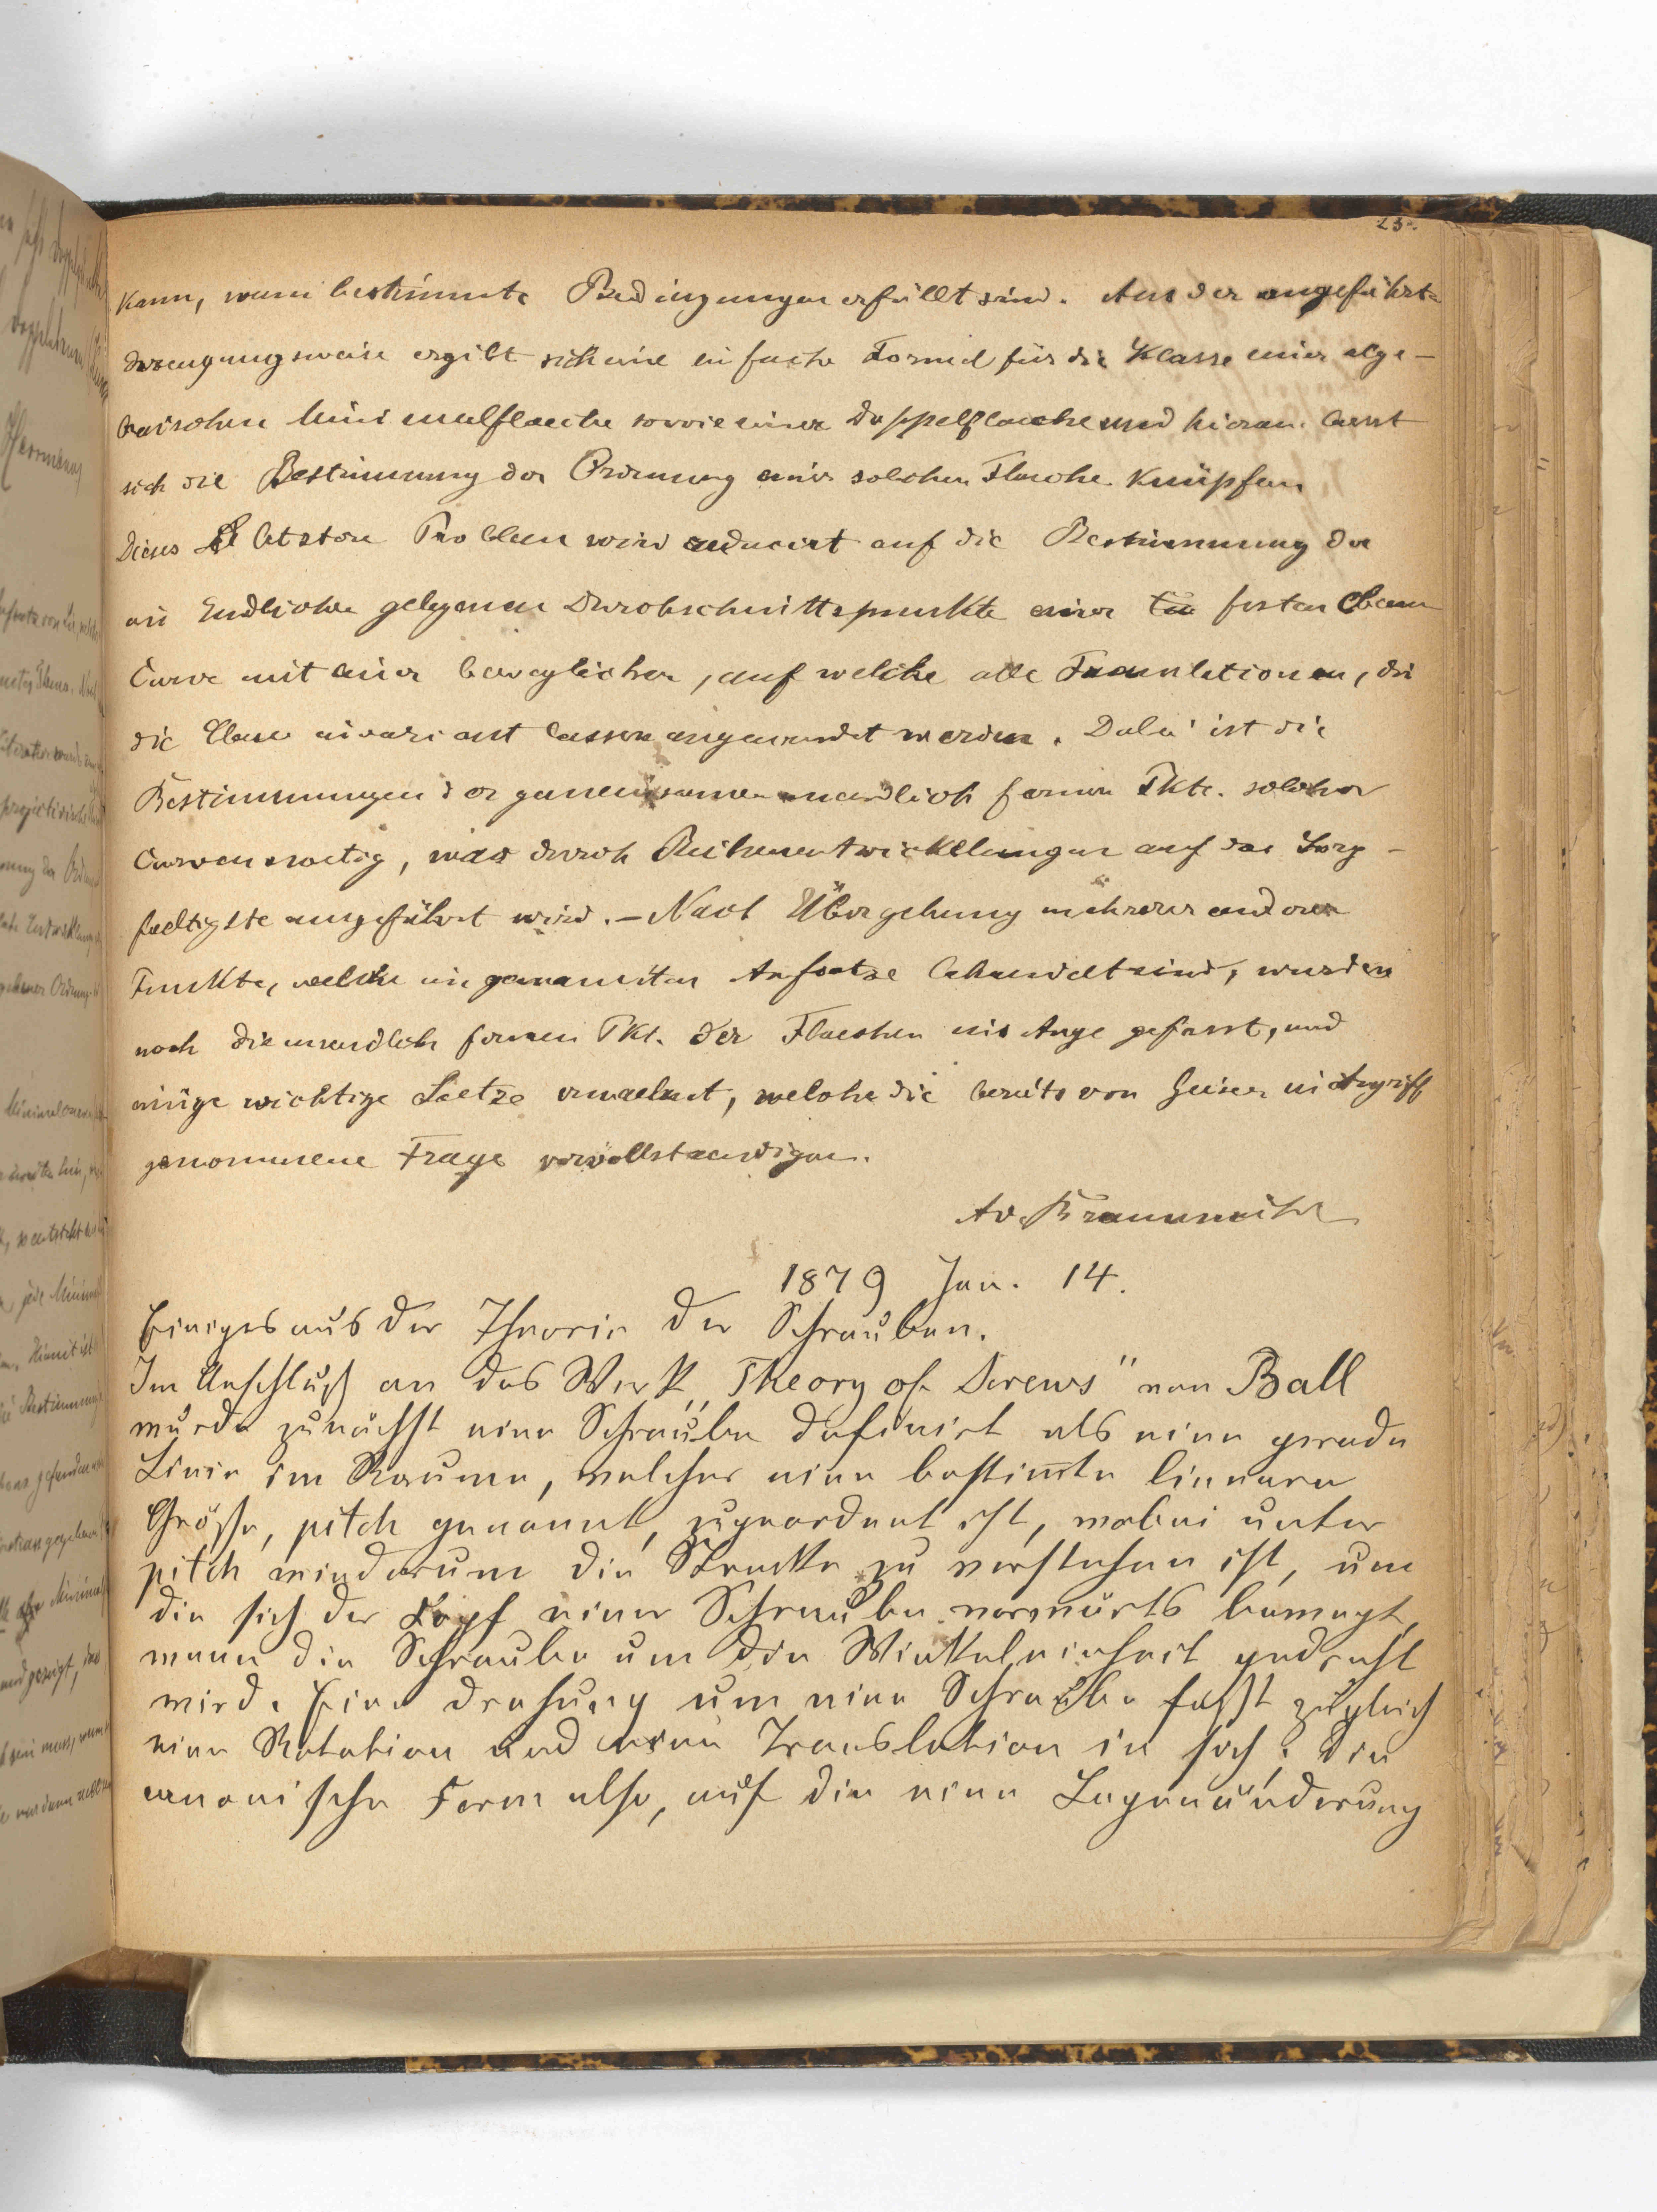 23.
kann, wenn bestimmte Bedingungen erfüllt sind. Aus der angeführten
Erzeugungsweise ergibt sich eine einfache Formel für die Klasse einer alge-
braischen Minimalflaeche sowie einer Doppelflaeche und hieran laesst
sich die Bestimmung der Ordnung einer solchen Flaeche knüpfen
Dieses letztere Problem wird reducirt auf die Bestimmung der
im Endlichen gelegenen Durchschnittspunkte einer festen ebenen
Curve mit einer beweglichen, auf welche alle Translationen, die
die Ebene invariant lassen angewendet werden. Dabei ist die
Bestimmungen der gemeinsamen unendlich fernen Pkte. solcher
Curven noetig, was durch Reihenentwickelungen auf das Sorg-
faeltigste ausgeführt wird. – Nach Übergehung mehrerer anderer
Punkte, welche im genannten Aufsatze behandelt sind, wurden
noch die unendlich fernen Pkt. der Flaechen ins Auge gefasst, und
einige wichtige Saetze erwaehnt, welche die bereits von Geiser in Angriff
genommene Frage vervollstaendigen.
Av. Braunmühl
1879 Jan. 14.
Einiges aus der Theorie der Schrauben.
Im Anschluß an das Werk „Theory of Screws" von Ball
wurde zunächst eine Schraube definirt als eine gerade
Linie im Raume, welcher eine bestim̄te lineare
Größe, pitch genannt, zugeordnet ist, wobei unter
pitch wiederum die Strecke zu verstehen ist, um
die sich der Kopf einer Schraube vorwärts bewegt,
wenn die Schraube um die Winkeleinheit gedreht
wird. Eine Drehung um eine Schraube faßt zugleich
eine Rotation und eine Translation in sich; die
canonische Form also, auf die eine Lagenänderung